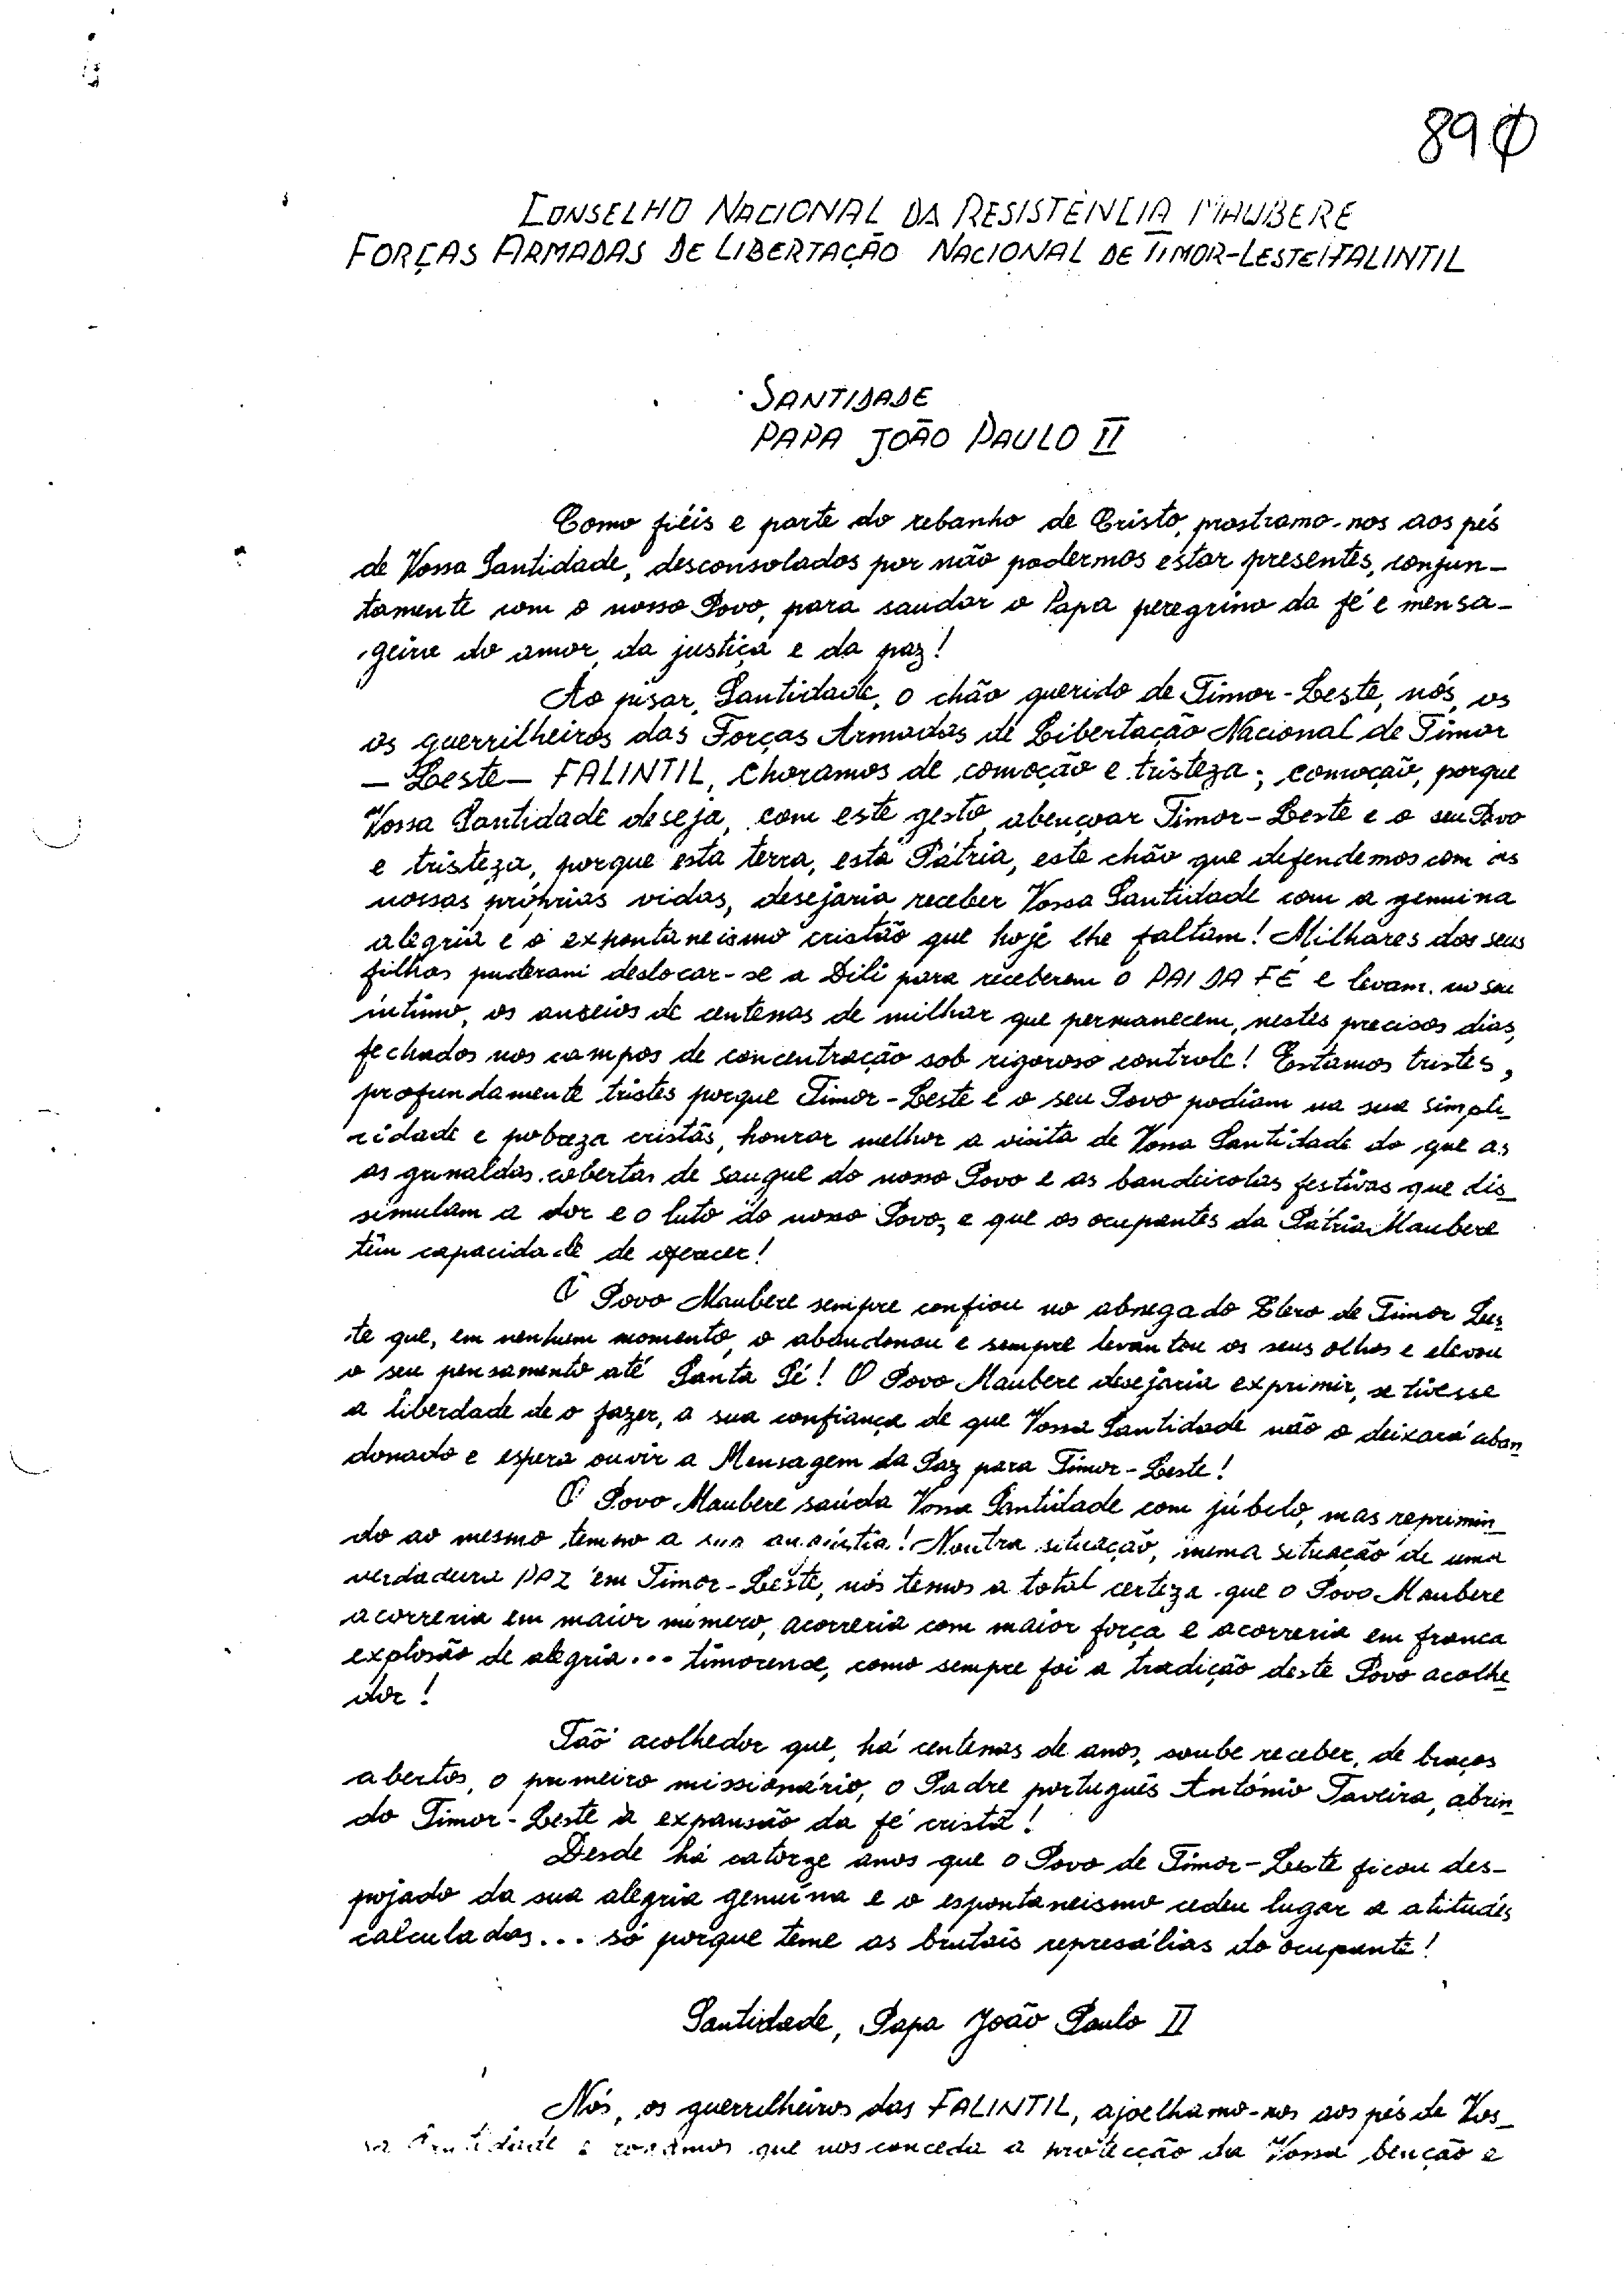 890
CONSELHO NACIONAL DA RESISTÊNCIA MAUBERE
FORÇAS ARMADAS DE LIBERTAÇÃO NACIONAL DE TIMOR-LESTE/FALINTIL
SANTIDADE
PAPA JOÃO PAULO II
Como fiéis e parte do rebanho de Cristo, prostramo-nos aos pés
de Vossa Santidade, desconsolados por não podermos estar presentes, conjun-
tamente com o nosso Povo, para saudar o Papa peregrino da fé e mensa-
geiro do amor, da justiça e da paz!
Ao pisar, Santidade, o chão querido de Timor-Leste, nós, os
os guerrilheiros das Forças Armadas de Libertação Nacional de Timor
-Leste- FALINTIL, choramos de comoção e tristeza; comoção, porque
Vossa Santidade deseja, com este gesto, abençoar Timor-Leste e o seu Povo
e tristeza, porque esta terra, esta Pátria, este chão que defendemos com as
nossas próprias vidas, desejaria receber Vossa Santidade com a genuina
alegria e o expontaneismo cristão que hoje lhe faltam! Milhares dos seus
filhos puderam deslocar-se a Dili para receberem o PAI DA FÉ e levam, no seu
íntimo, os anseios de centenas de milhar que permanecem, nestes precisos dias,
fechados nos campos de concentração sob rigoroso controle! Estamos tristes,
profundamente tristes porque Timor-Leste e o seu Povo podiam na sua simpli-
cidade e pobreza cristãs, honrar melhor a visita de Vossa Santidade do que as
as grinaldas cobertas de sangue do nosso Povo e as bandeirolas festivas que dis-
simulam a dor e o luto do nosso Povo, e que os ocupantes da Pátria Maubere
têm capacidade de oferecer!
O Povo Maubere sempre confiou no abnegado Clero de Timor Les-
te que, em nenhum momento, o abandonou e sempre levantou os seus olhos e elevou
o seu pensamento até Santa Sé! O Povo Maubere desejaria exprimir, se tivesse
a liberdade de o fazer, a sua confiança de que Vossa Santidade não o deixará aban-
donado e espera ouvir a Mensagem da Paz para Timor-Leste!
O Povo Maubere saúda Vossa Santidade com júbilo, mas reprimin-
do ao mesmo tempo a sua angústia! Noutra situação, numa situação de uma
verdadeira PAZ em Timor-Leste, nós temos a total certeza que o Povo Maubere
acorreria em maior número, acorreria com maior força e acorreria em franca
explosão de alegria... timorense, como sempre foi a tradição deste Povo acolhe-
dor!
Tão acolhedor que, há centenas de anos, soube receber, de braços
abertos, o primeiro missionário, o Padre português António Taveira, abrin-
do Timor-Leste à expansão da fé cristã!
Desde há catorze anos que o Povo de Timor-Leste ficou des-
pojado da sua alegria genuína e o espontaneismo cedeu lugar a atitudes
calculadas... só porque teme as brutais represálias do ocupante!
Santidade, Papa João Paulo II
Nós, os guerrilheiros das FALINTIL, ajoelhamo-nos aos pés de Vos-
sa Santidade e rogamos que nos conceda a protecção da Vossa benção e